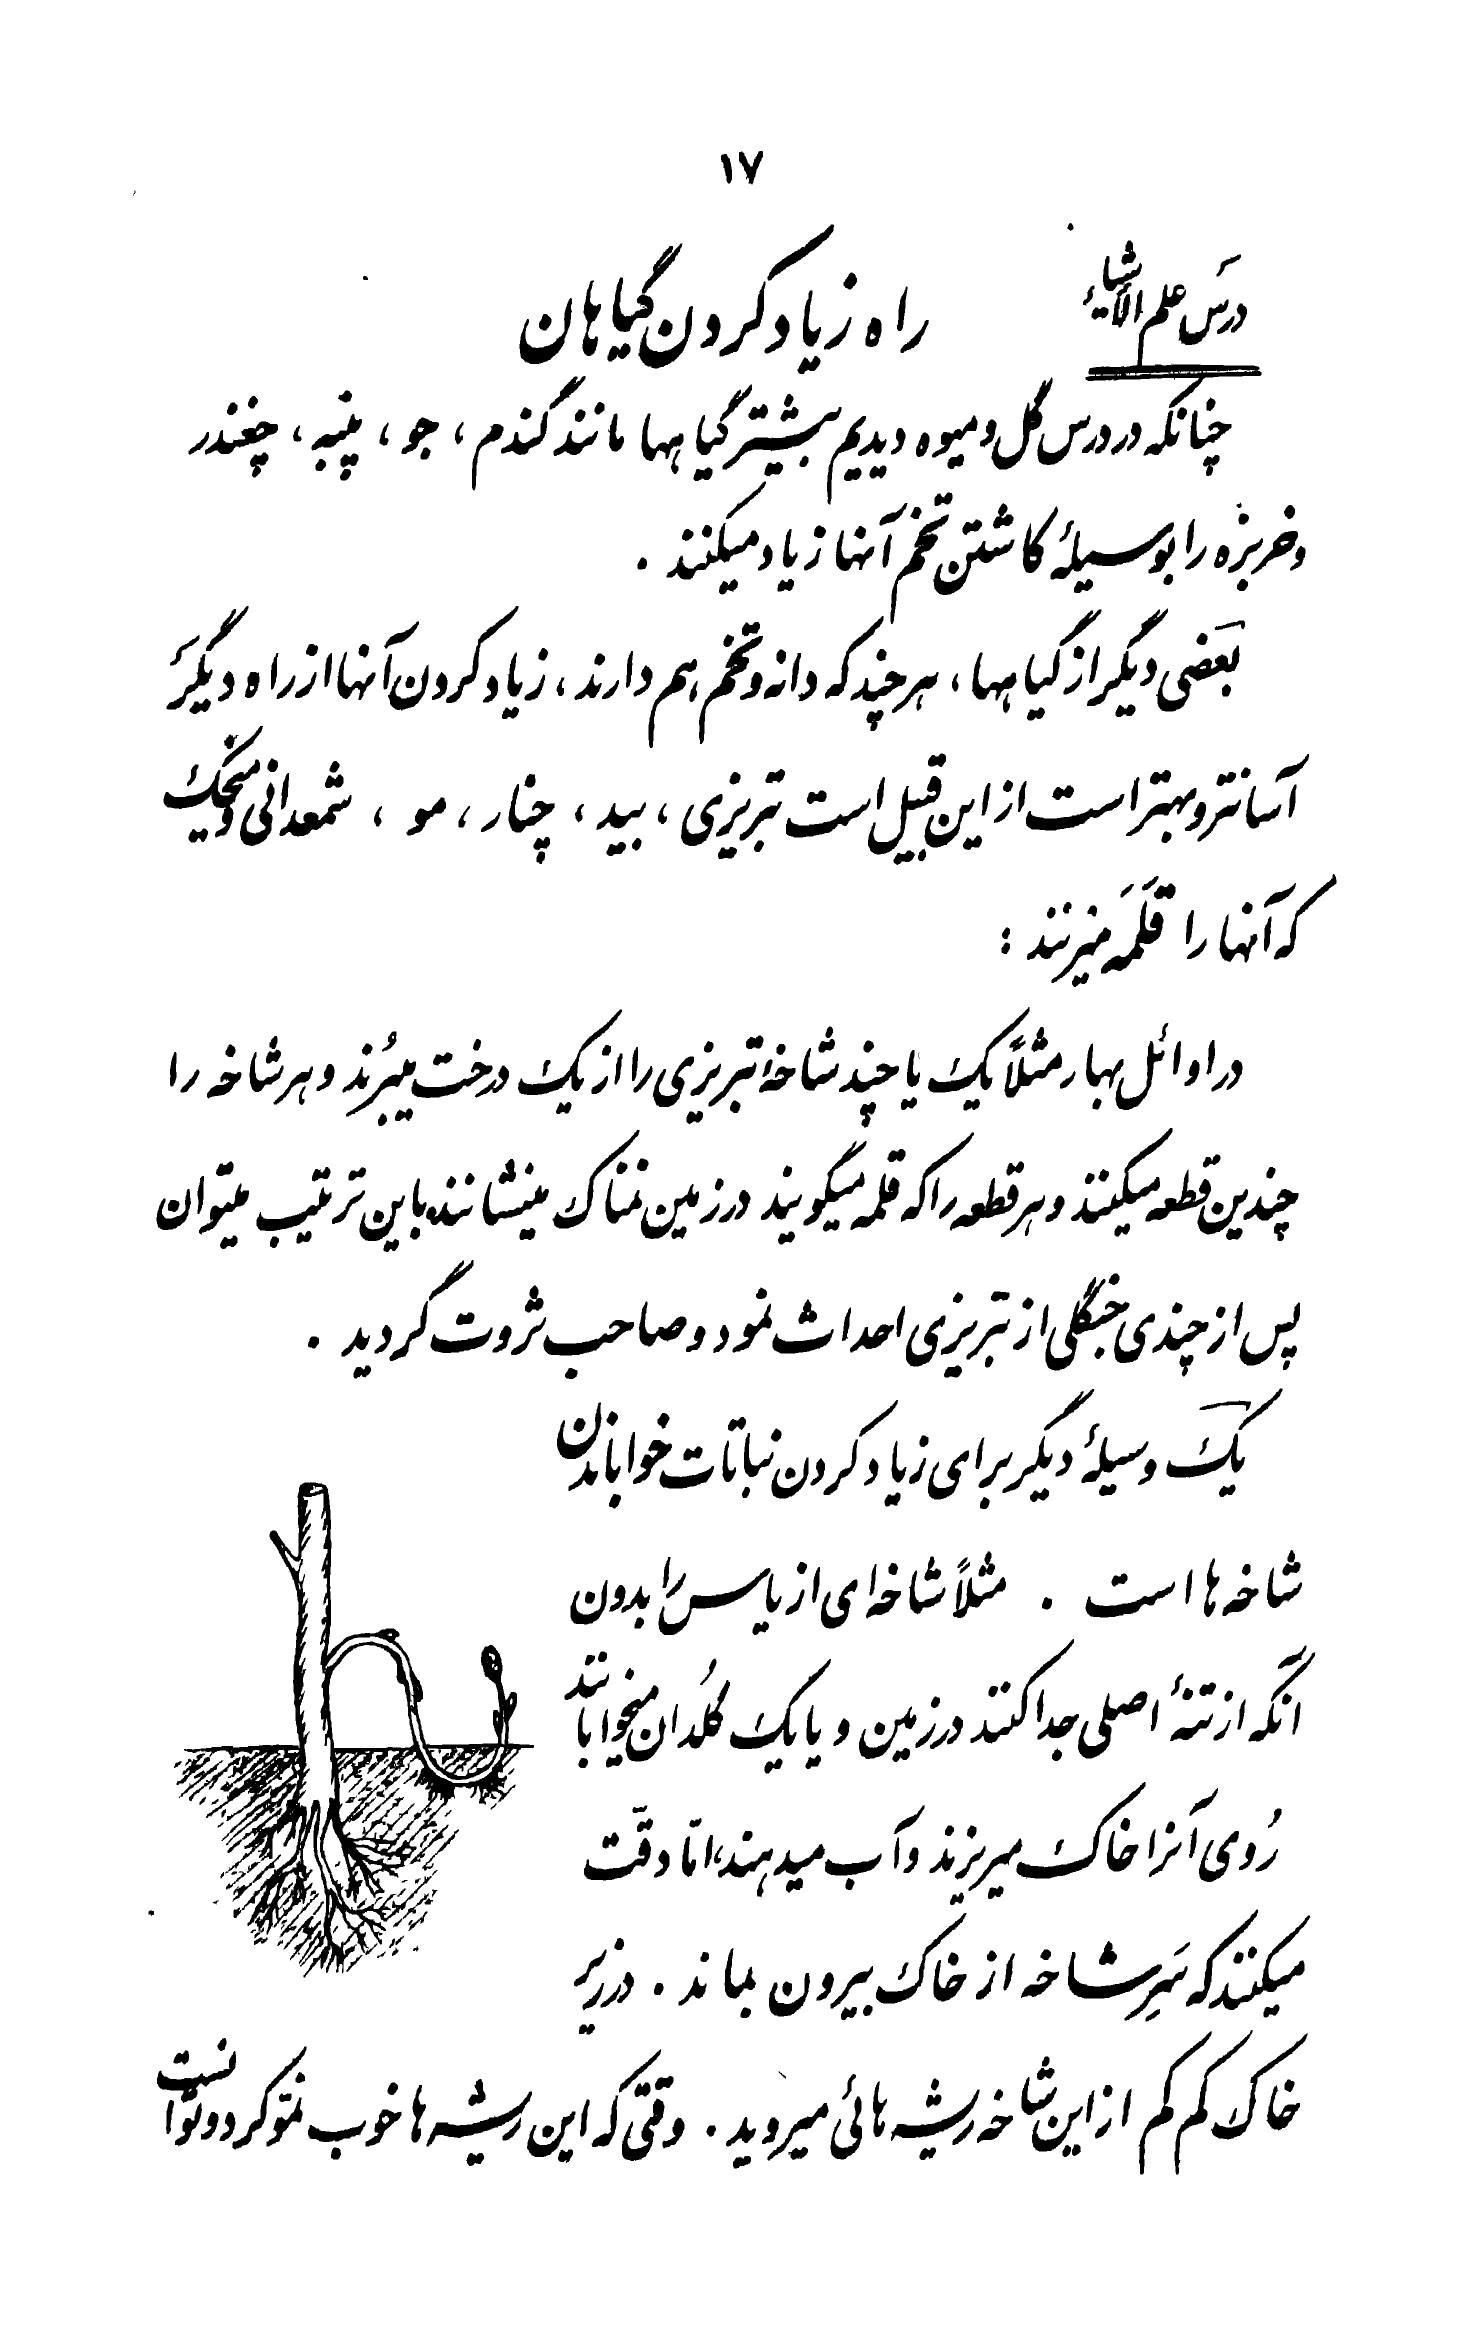 ۱۷
درس علم الأشیاء
راه زیاد کردن گیاهان
چنانکه در درس گل و میوه دیدیم بیشتر گیاهها مانند گندم ، جو ، پنبه ، چغندر
و خربزه را بوسیلهٔ کاشتن تخم آنها زیاد میکنند .
بعضی دیگر از گیاهها ، هر چند که دانه و تخم هم دارند ، زیاد کردن آنها از راه دیگر
آسانتر و بهتر است از این قبیل است تبریزی ، بید ، چنار ، مو ، شمعدانی و میخک
که آنها را قَلَمَه میزنند :
در اوائل بهار مثلاً یک یا چند شاخهٔ تبریزی را از یک درخت میبُرند و هر شاخه را
چندین قطعه میکنند و هر قطعه را که قلمه میگویند در زمین نمناک مینشانند، باین ترتیب میتوان
پس از چندی جنگلی از تبریزی احداث نمود و صاحب ثروت گردید .
یک وسیلهٔ دیگر برای زیاد کردن نباتات خواباندن
شاخه ها است . مثلاً شاخه ای از یاس را بدون
آنکه از تنهٔ اصلی جدا کنند در زمین و یا یک گلُدان میخوابانند
رُوی آنرا خاک میریزند و آب میدهند، امّا دقّت
میکنند که سَرِ شاخه از خاک بیرون بماند . در زیر
خاک کم کم از این شاخه ریشه هائی میروید . وقتی که این ریشه ها خوب نموّ کرد و توانست